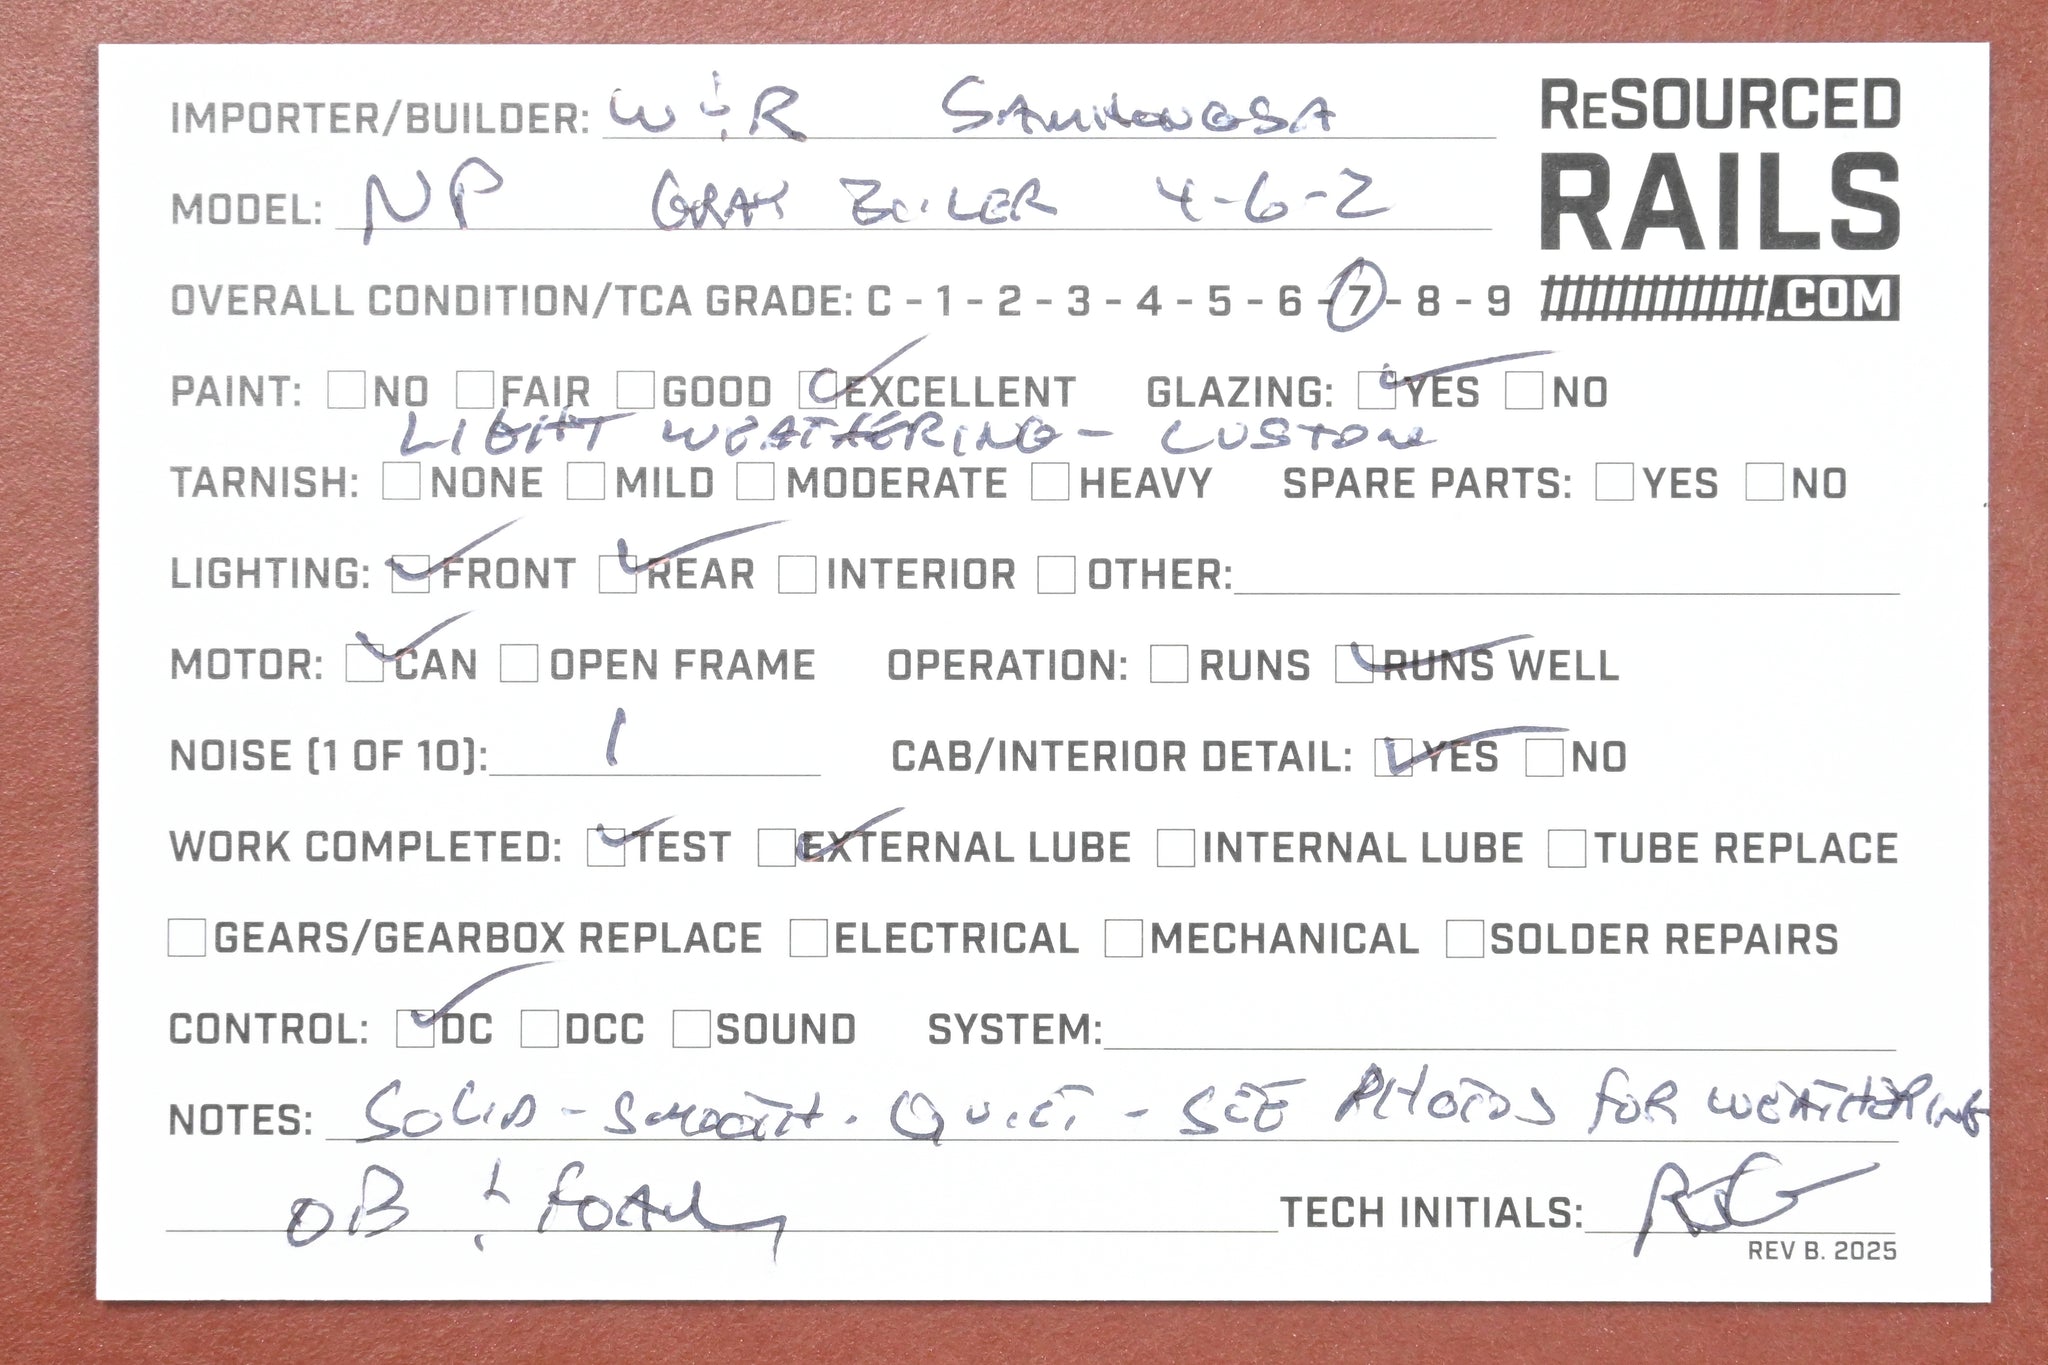 IMPORTER/BUILDER: W & R SAMHONGSA
RESOURCED
RAILS
.COM
MODEL: NP GRAY BOILER 4-6-2
OVERALL CONDITION/TCA GRADE: C - 1 - 2 - 3 - 4 - 5 - 6 - 7 - 8 - 9
PAINT: NO FAIR GOOD EXCELLENT GLAZING: YES NO
LIGHT WEATHERING - CUSTOM
TARNISH: NONE MILD MODERATE HEAVY SPARE PARTS: YES NO
LIGHTING: FRONT REAR INTERIOR OTHER:
MOTOR: CAN OPEN FRAME OPERATION: RUNS RUNS WELL
NOISE (1 OF 10): 1 CAB/INTERIOR DETAIL: YES NO
WORK COMPLETED: TEST EXTERNAL LUBE INTERNAL LUBE TUBE REPLACE
GEARS/GEARBOX REPLACE ELECTRICAL MECHANICAL SOLDER REPAIRS
CONTROL: DC DCC SOUND SYSTEM:
NOTES: SOLID - SMOOTH - QUIET - SEE PHOTOS FOR WEATHERING
OB & FOAM TECH INITIALS: RJG
REV B. 2025